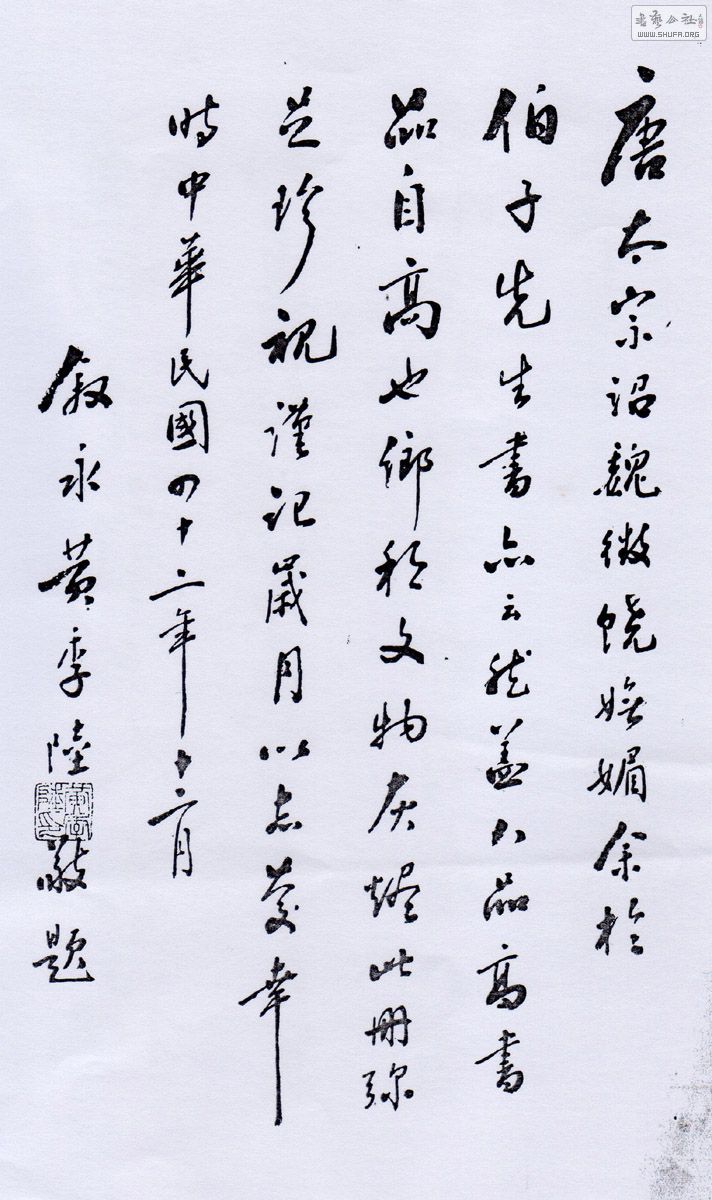 唐太宗詔魏徵饒嫵媚余於
伯子先生書亦云然蓋人品高書
品自高也鄉邦文物灰燼此冊彌
足珍視謹記歲月以志慶幸
時中華民國四十二年十二月
敘永黃季陸敬題
黃季陸印
書藝公社
WWW.SHUFA.ORG